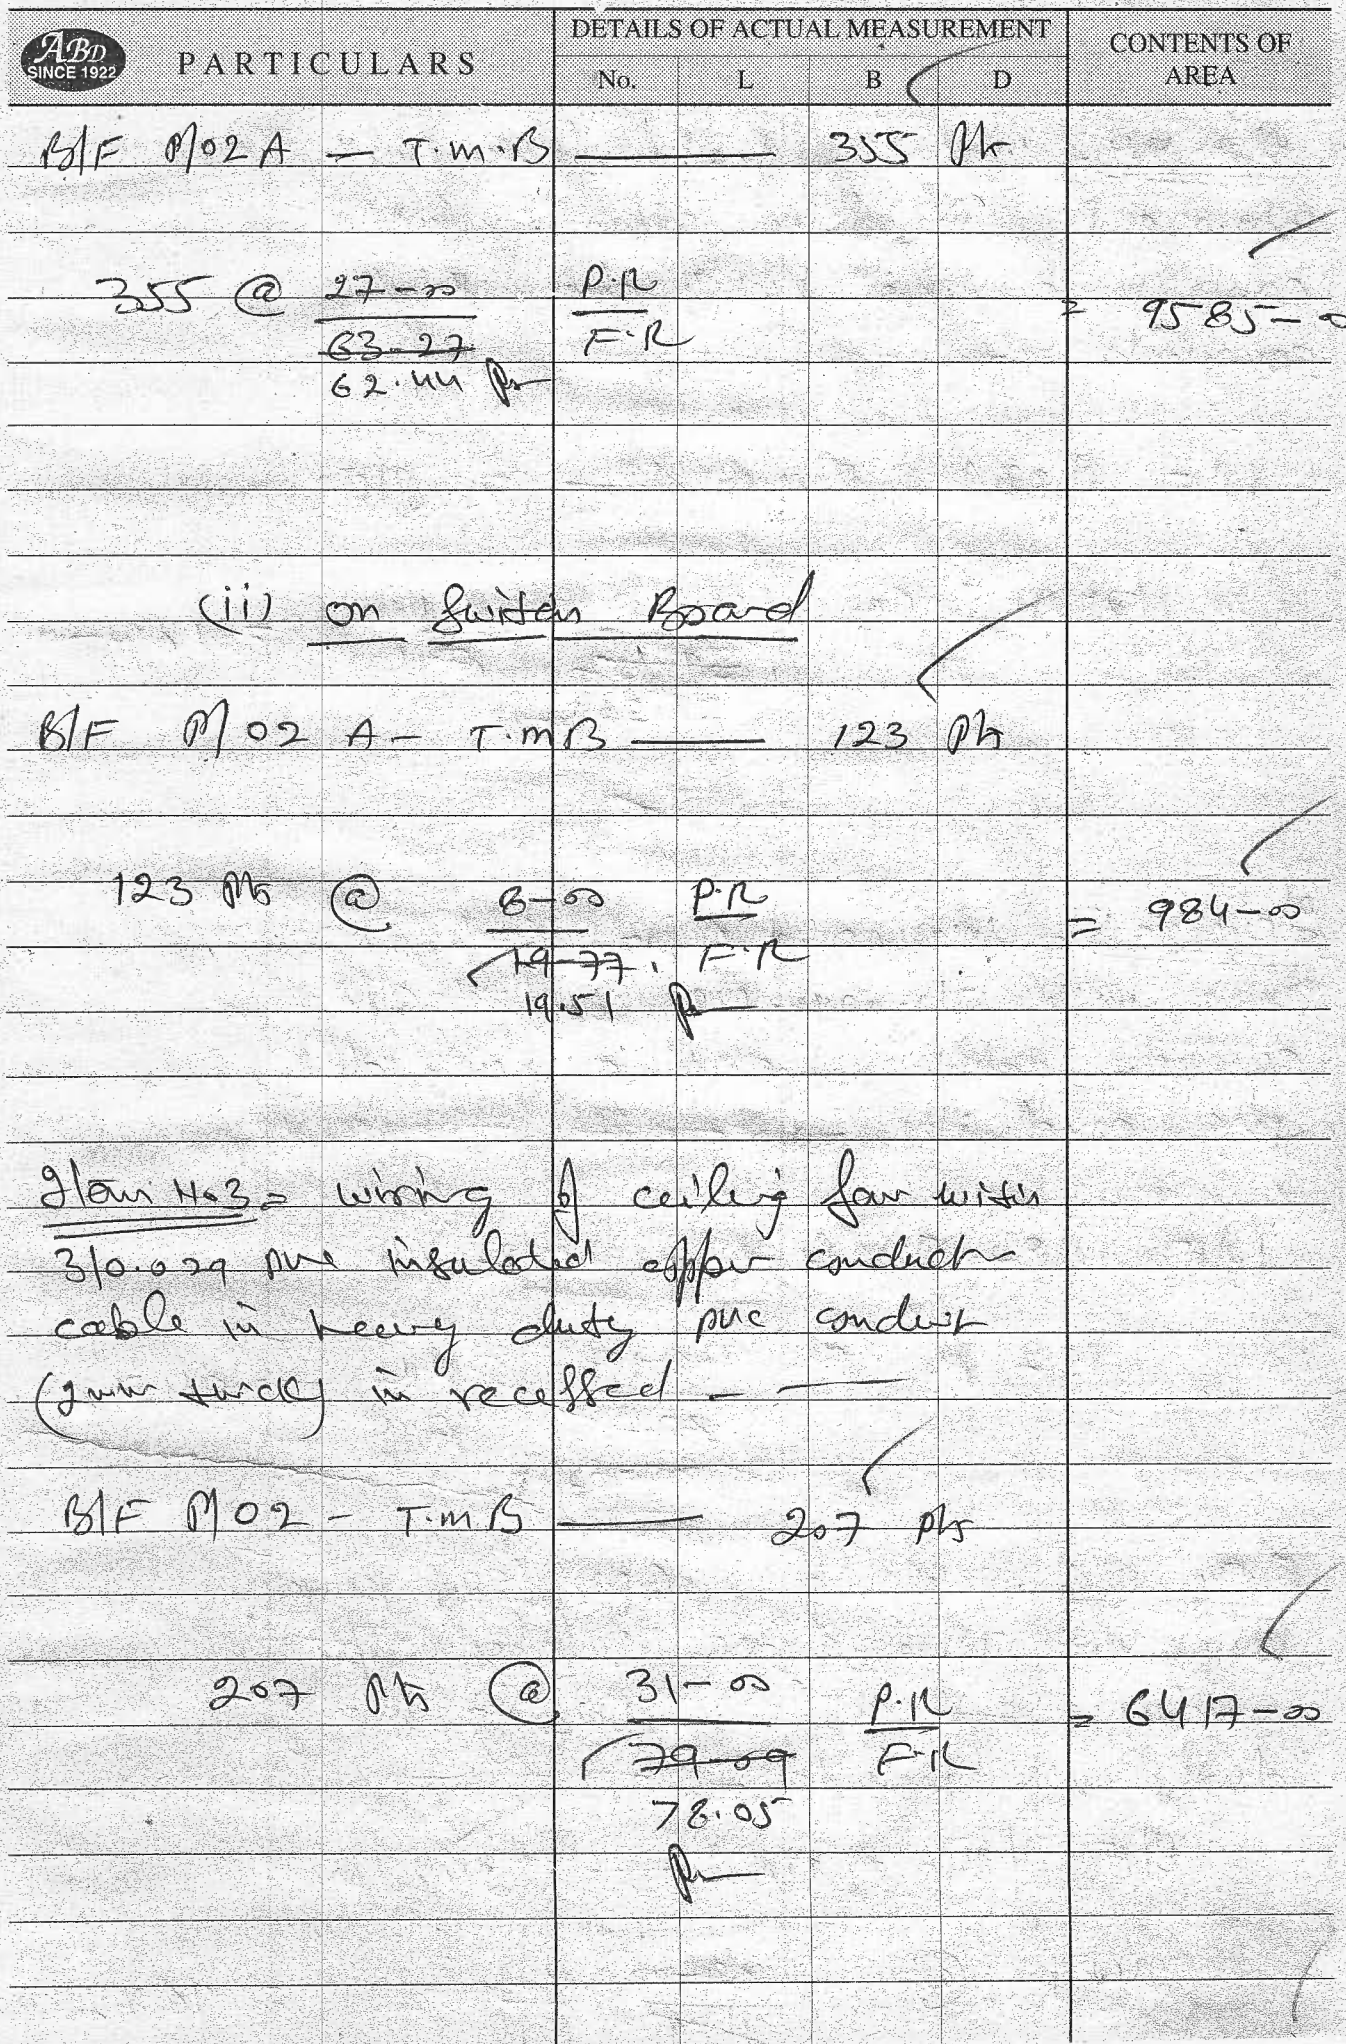 ABD
SINCE 1922
PARTICULARS
DETAILS OF ACTUAL MEASUREMENT
No. L B D
CONTENTS OF
AREA
B/F P/02 A — T.M.B —— 355 Pts
355 @ 27-00 P.R = 9585-00
63-27 F.R
62.44
(ii) on Switch Board
B/F P/02 A - T.M.B —— 123 Pts
123 Pts @ 8-00 P.R = 984-00
19-77 F.R
19.51
Item No 3 = wiring of ceiling fan with
3/0.029 pvc insulated copper conduct
cable in heavy duty pvc conduit
(2mm thick) in recessed - ——
B/F P/02 - T.M.B —— 207 Pts
207 Pts @ 31-00 P.R = 6417-00
79-09 F.R
78.05